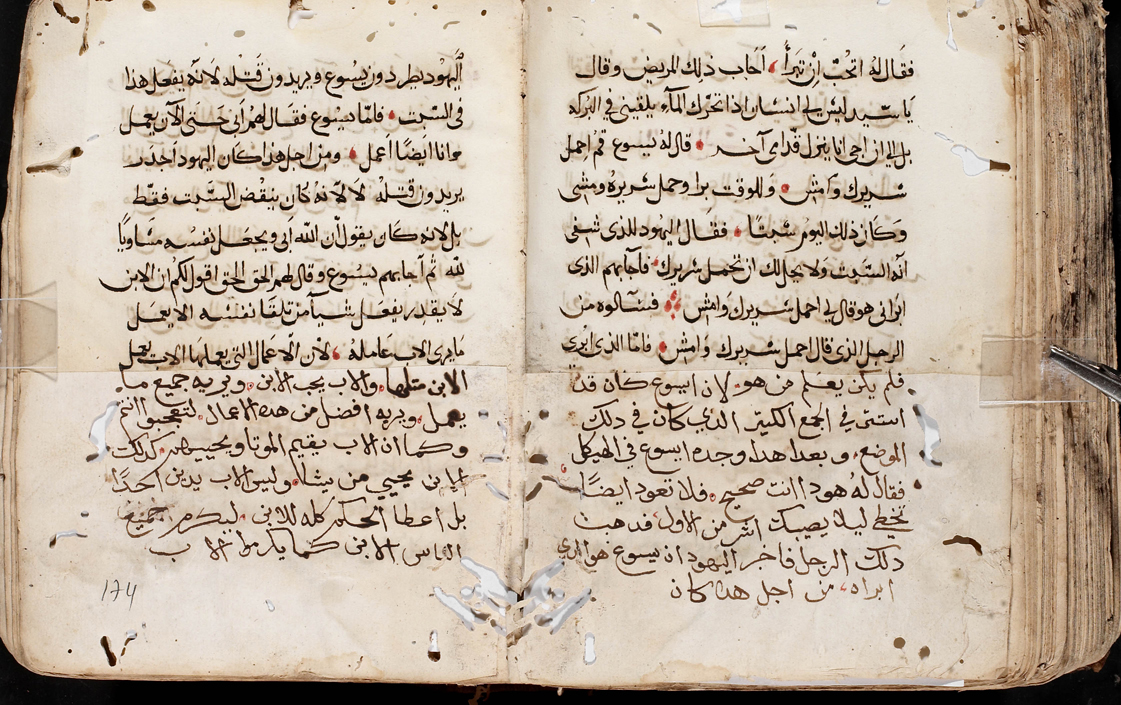 فقال له اتحب ان تبرأ اجاب ذلك المريض وقال
يا سيد ليس لي انسان اذا تحرك المآء يلقيني في البركه
بل الي ان اجي انا ينزل قدامي آخر قال له يسوع قم احمل
سريرك وامش وللوقت برا وحمل سريره ومشى
وكان ذلك اليوم سبتًا فقال اليهود للذي شفى
انه السبت ولا يحل لك ان تحمل سريرك فأجابهم الذى
ابرانى هو قال لي احمل سريرك وامش فسالوه من
الرجل الذى قال احمل سريرك وامش فامّا الذى ابرى
فلم يكن يعلم من هو لان ايسوع كان قد
استتر في الجمع الكتير الذي كان في دلك
الموضع وبعد هدا وجده ايسوع في الهيكل
فقال له هودا انت صحيح فلا تعود ايضًا
تخطي ليلا يصيبك اشر من الاول فدهب
دلك الرجل فاخبر اليهود ان يسوع هو الدي
ابراه من اجل هدا كان
اليهود يطردون يسوع ويريدون قتله لانه يفعل هذا
فى السبت فامّا يسوع فقال لهم أبى حتى الآن يعمل
وانا ايضًا اعمل ومن اجل هذا كان اليهود اجدر
يريدون قتله لا لانه كان ينقض السبت فقط
بل لانه كان يقول أن الله أبى ويجعل نفسه مساويًا
لله ثم أجابهم يسوع وقال لهم الحق الحق اقول لكم ان الابن
لا يقدر يفعل شيأ من تلقا نفسه الا يعمل
ما يرى الاب عامله لأن الاعمال التى يعملها الاب يعمل
الابن مثلها والاب يحب الابن ويريه جميع ما
يعمل ويريه افضل من هده الاعمال لتتعجبوا انتم
وكما ان الاب يقيم الموتا ويحييهم كدلك
الابن يحيي من يشا وليس الاب يدين احدًا
بل اعطا الحكم كله للابن ليكرم جميع
الناس الابن كما يكرموا الاب
174